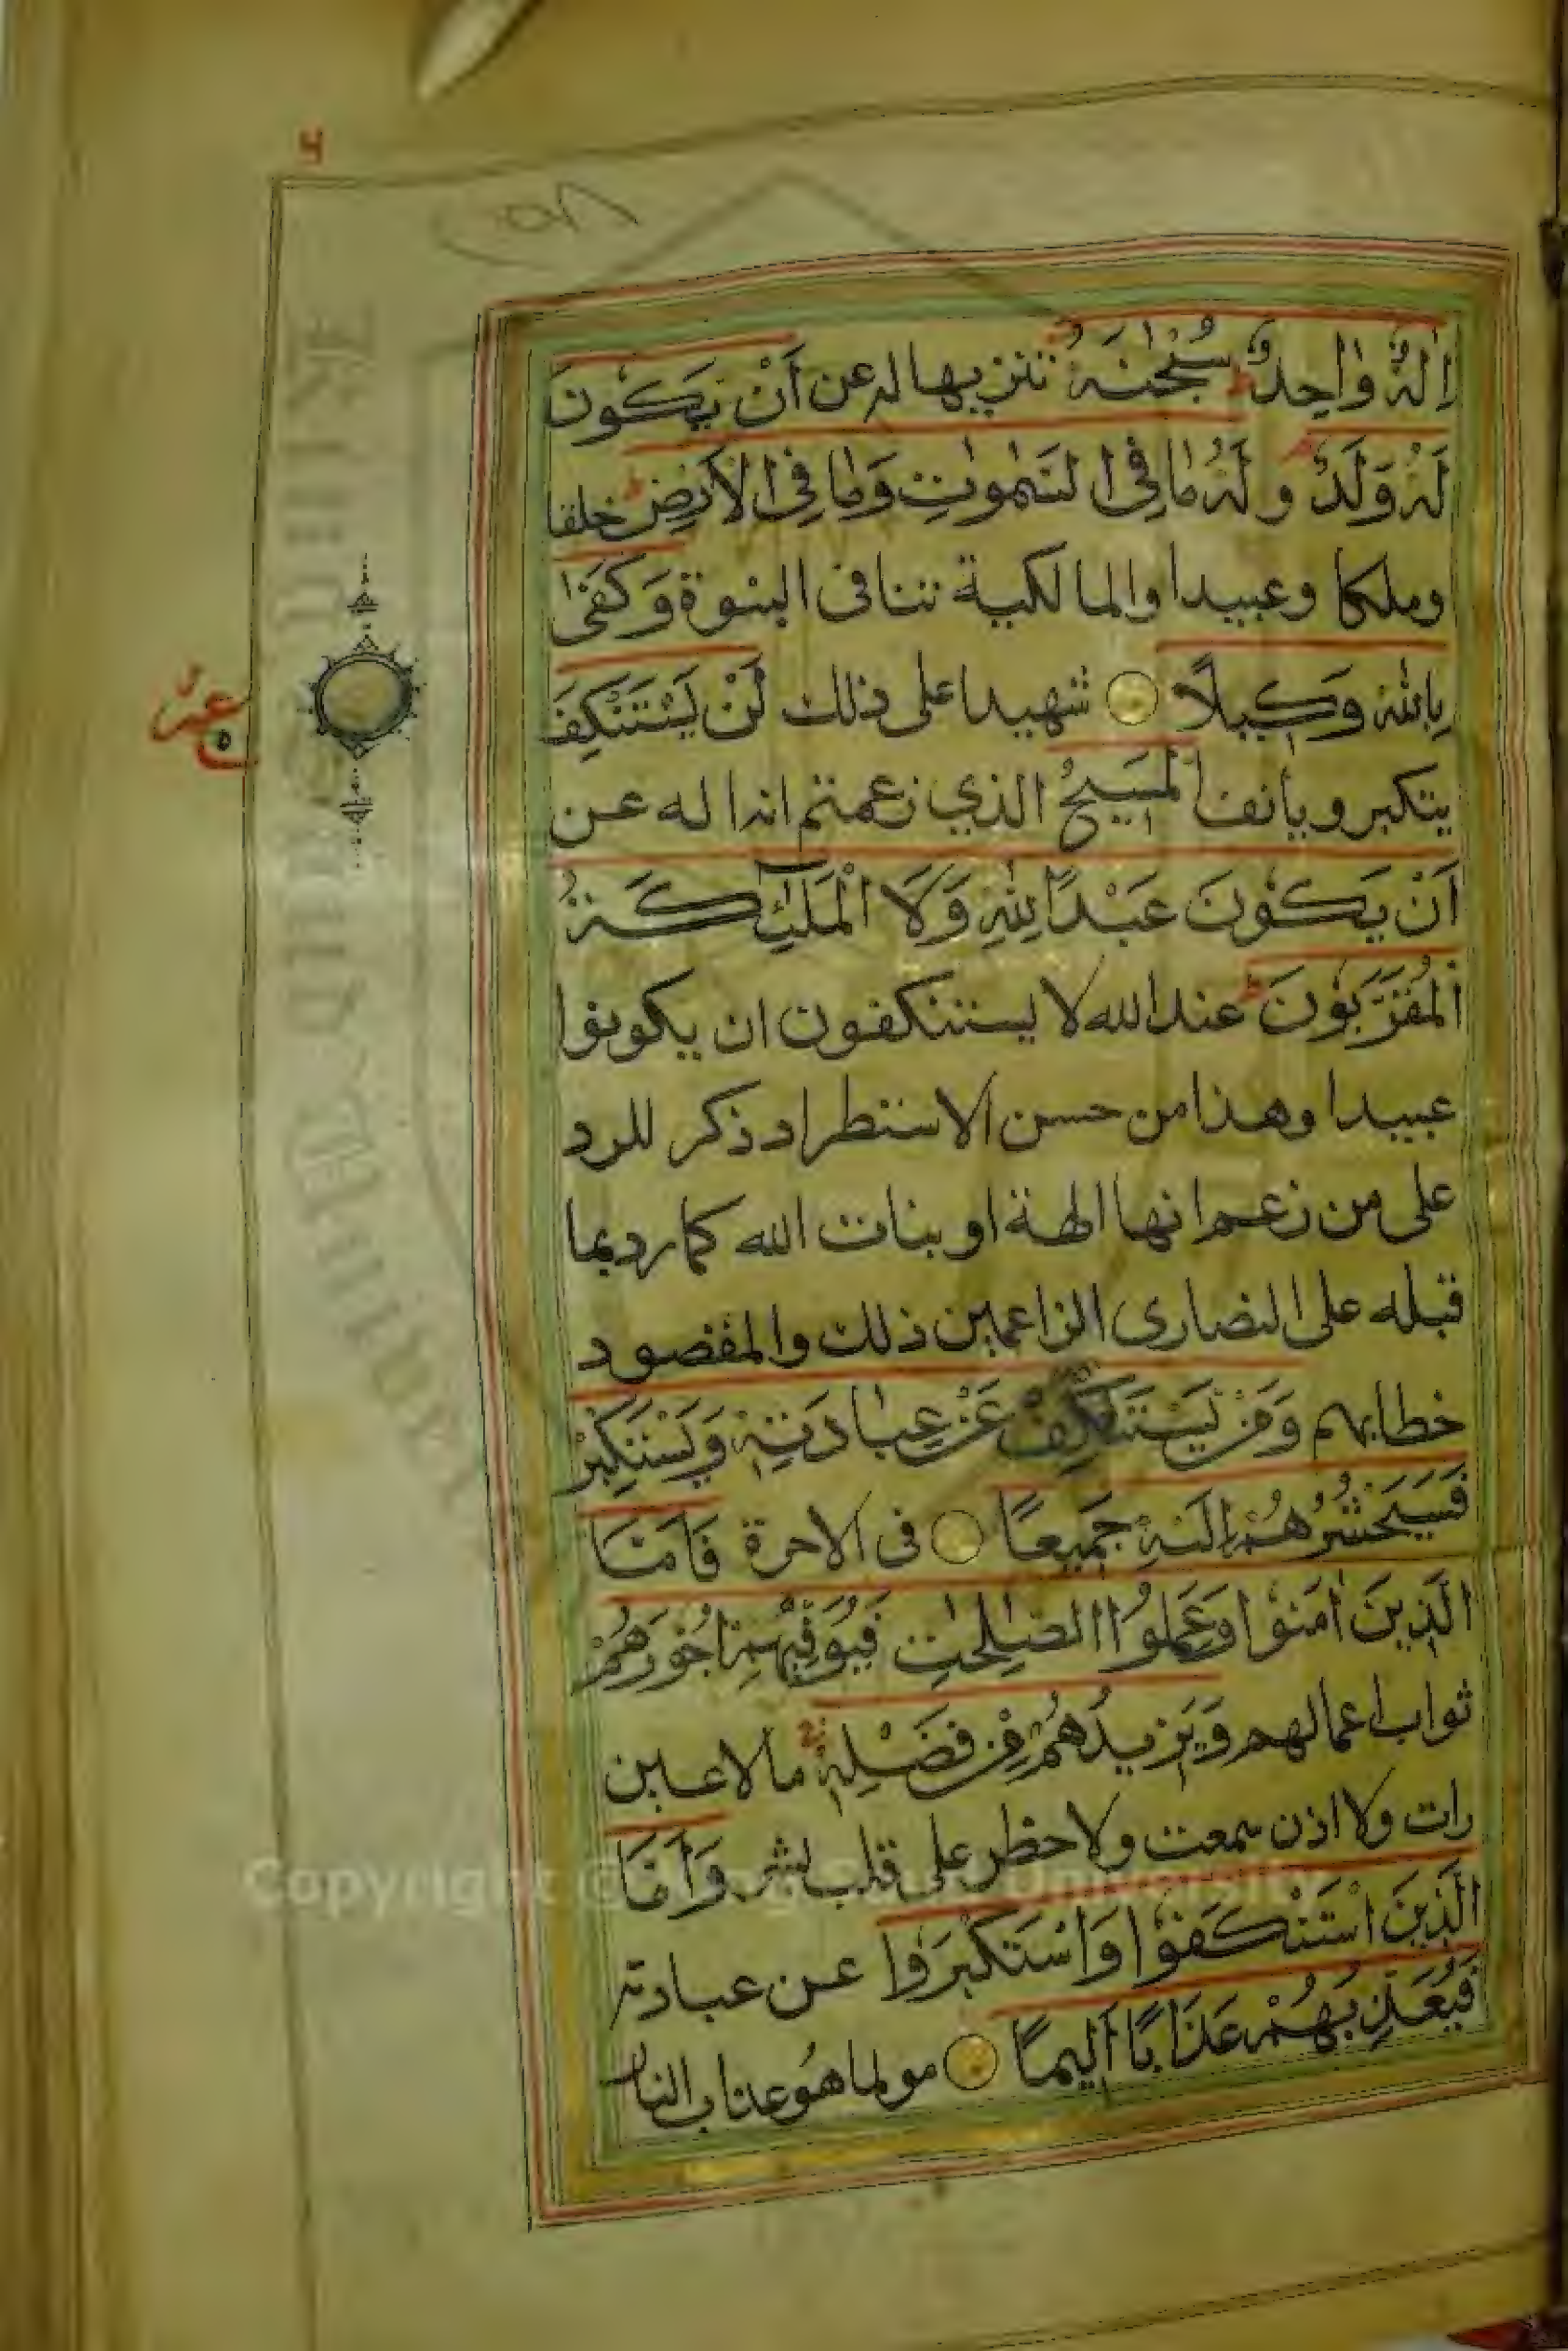 إِلٰهٌ وَاحِدٌ سُبْحٰنَهُ تنزيها له عن أَنْ يَكُونَ
لَهُ وَلَدٌ وله مَا فِي السَّمٰوٰتِ وَمَا فِي الْأَرْضِ خلقا
وملكا وعبيدا والمالكية تنافى البنوة وَكَفٰى
بِاللهِ وَكِيلًا شهيدا على ذلك لَنْ يَسْتَنْكِفَ
يتكبر ويأنف الْمَسِيحُ الذي زعمتم انه اله عن
أَنْ يَكُونَ عَبْدًا لِلهِ وَلَا الْمَلٰئِكَةُ
الْمُقَرَّبُونَ عند الله لا يستنكفون ان يكونوا
عبيدا وهذا من حسن الاستطراد ذكر للرد
على من زعم انها الهة او بنات الله كما رد بما
قبله على النصارى الزاعمين ذلك والمقصود
خطابهم وَمَنْ يَسْتَنْكِفْ عَنْ عِبَادَتِهِ وَيَسْتَكْبِرْ
فَسَيَحْشُرُهُمْ إِلَيْهِ جَمِيعًا فى الاخرة فَأَمَّا
الَّذِينَ اٰمَنُوا وَعَمِلُوا الصّٰلِحٰتِ فَيُوَفِّيهِمْ أُجُورَهُمْ
ثواب اعمالهم وَيَزِيدُهُمْ مِنْ فَضْلِهِ ما لا عين
رات ولا اذن سمعت ولا خطر على قلب بشر وَأَمَّا
الَّذِينَ اسْتَنْكَفُوا وَاسْتَكْبَرُوا عن عبادته
فَيُعَذِّبُهُمْ عَذَابًا أَلِيمًا مولما هو عذاب النار
Copyright © King Saud University